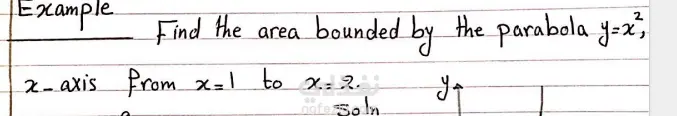 Example
Find the area bounded by the parabola y=x²,
x-axis from x=1 to x=2.
Soln
y